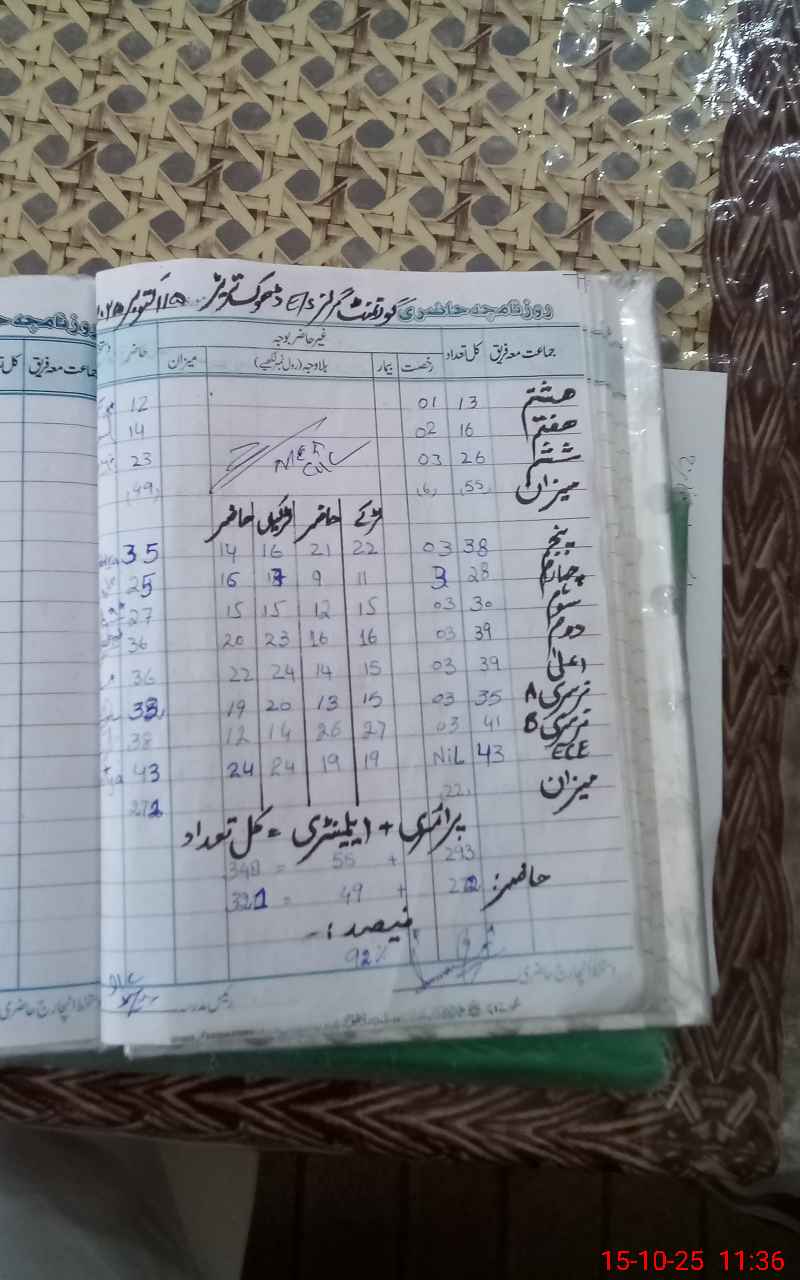 روزنامچہ حاضری گورنمنٹ گرلز E/S ڈھوک 15 اکتوبر
جماعت معہ فریق کل تعداد غیر حاضر بوجہ حاضر
رخصت بیمار بلاوجہ (رول نمبر لکھیے) میزان
ہشتم 13 01 12
ہفتم 16 02 14
ششم 26 03 23
میزان 55 6 49
لڑکے حاضر لڑکیاں حاضر
پنجم 38 03 22 21 16 14 35
چہارم 28 3 11 9 17 16 25
سوم 30 03 15 12 15 15 27
دوم 39 03 16 16 23 20 36
اعلیٰ 39 03 15 14 24 22 36
نرسری A 35 03 15 13 20 19 33
نرسری B 41 03 27 26 14 12 38
ECE 43 NiL 19 19 24 24 43
میزان 22 272
پرائمری + ایلیمنٹری = کل تعداد
293 + 55 = 348
حاضر: 272 + 49 = 321
فیصد :-
92%
دستخط انچارج حاضری رئیس مدرسہ
روزنامچہ حا
جماعت معہ فریق
دستخط انچارج حاضری
15-10-25 11:36